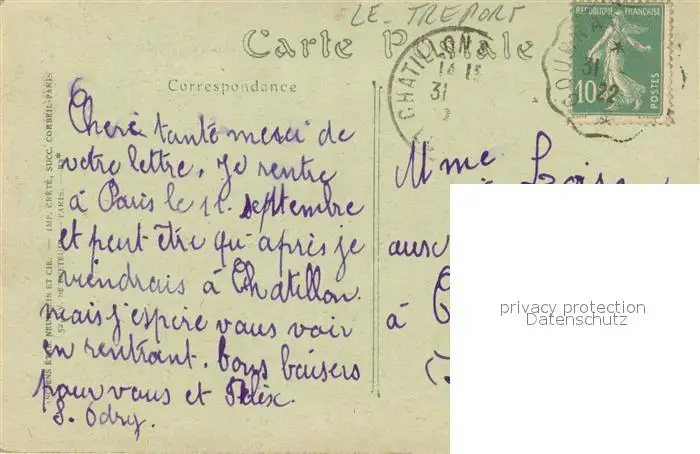 LE TREPORT
Carte Postale
Correspondance
Chere tante merci de
votre lettre. Je rentre
à Paris le 11 septembre
et peut être qu'après je
viendrais à Chatillon.
mais j'espère vous voir
en rentrant. bons baisers
pour vous et Félix.
S. Odry.
CHATILLON S
31
RÉPUBLIQUE FRANÇAISE
10c
POSTES
31
22
Mme
aux
à
privacy protection
Datenschutz
IMP. CRÉTÉ, SUCC. CORBEIL-PARIS